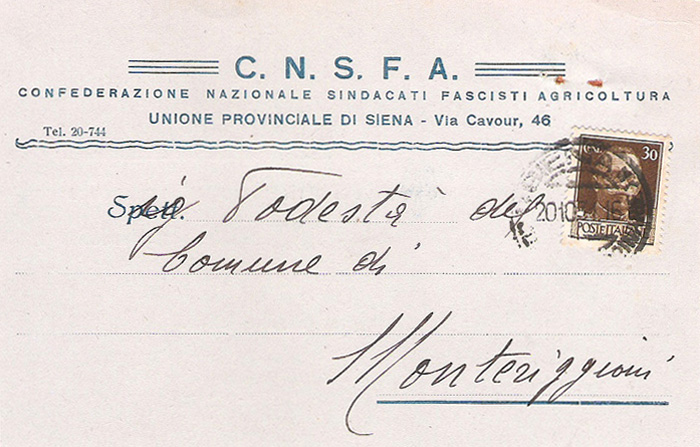 C. N. S. F. A.
CONFEDERAZIONE NAZIONALE SINDACATI FASCISTI AGRICOLTURA
UNIONE PROVINCIALE DI SIENA - Via Cavour, 46
Tel. 20-744
30
POSTE ITALIANE
Spett. Podestà del
Comune di
Monteriggioni